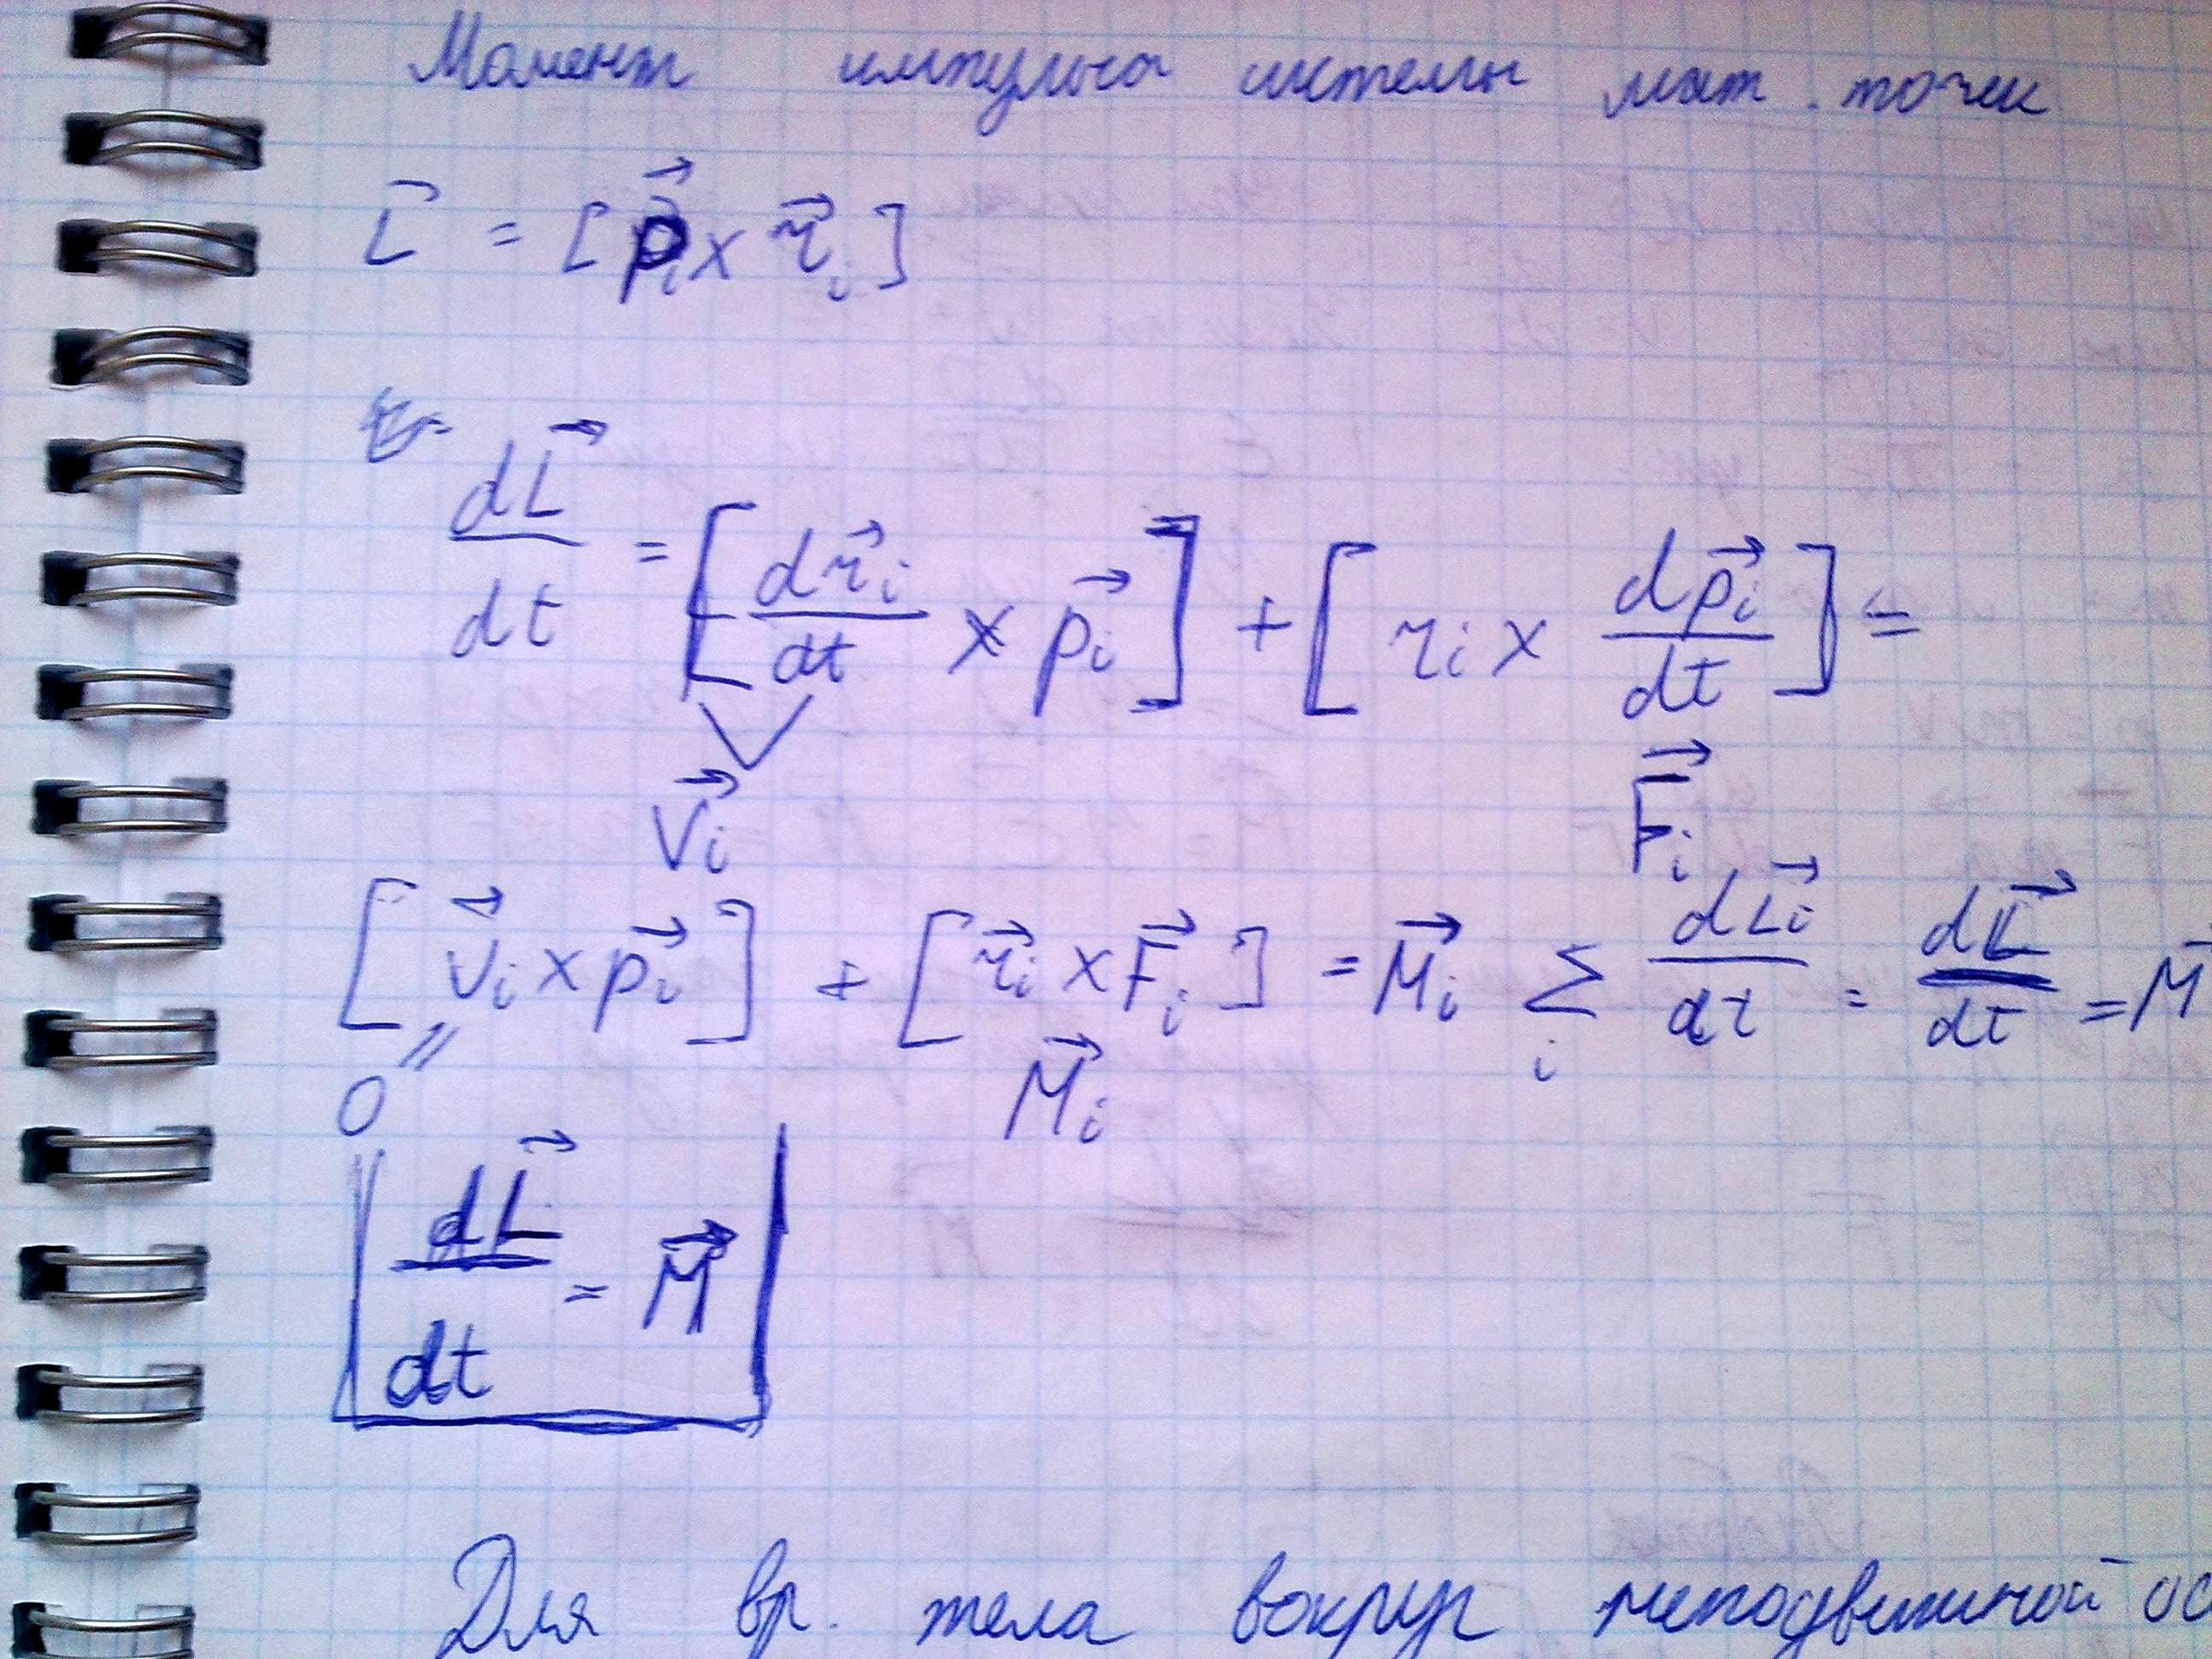 Момент импульса системы мат. точек
L⃗ = [p⃗ᵢ × r⃗ᵢ]
dL⃗/dt = [dr⃗ᵢ/dt × p⃗ᵢ] + [rᵢ × dp⃗ᵢ/dt] =
V⃗ᵢ F⃗ᵢ
[V⃗ᵢ × p⃗ᵢ] + [r⃗ᵢ × F⃗ᵢ] = M⃗ᵢ ∑ᵢ dL⃗ᵢ/dt = dL⃗/dt = M⃗
0 M⃗ᵢ
dL⃗/dt = M⃗
Для вр. тела вокруг неподвижной ос